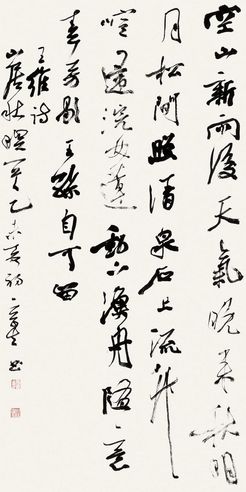 空山新雨後天氣晚來秋明
月松間照清泉石上流竹
喧歸浣女蓮動下漁舟隨意
春芳歇王孫自可留
王維詩
山居秋暝 乙未春初 書